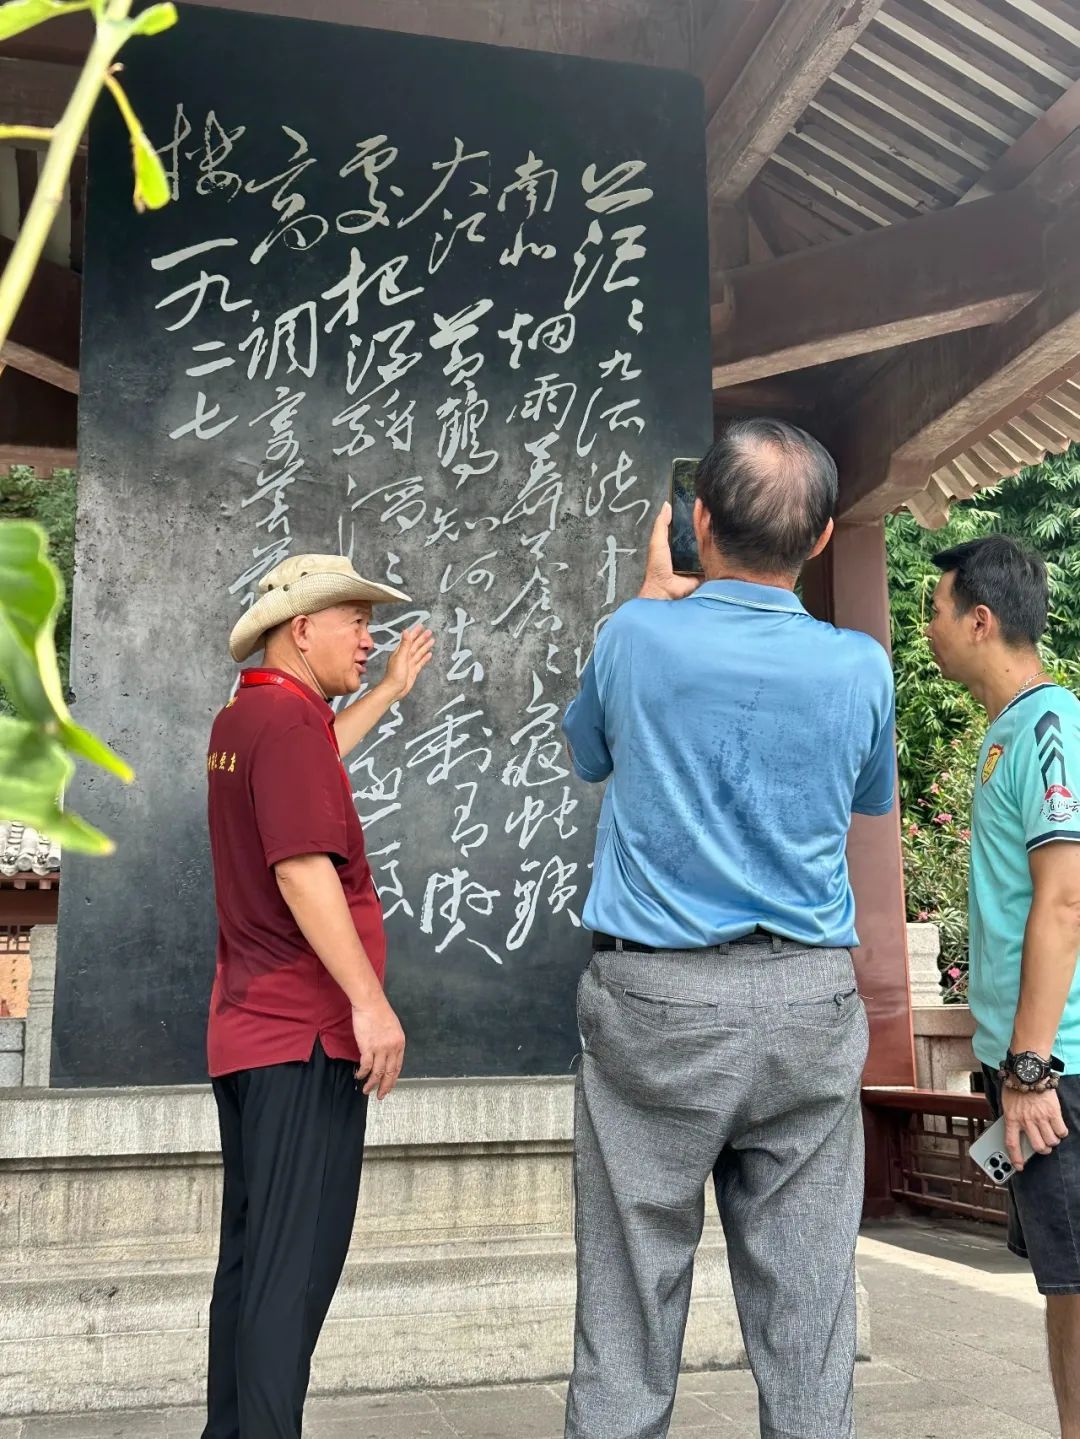 茫々九派流中
南北烟雨莽苍々龟蛇锁
大江黄鹤知何去剩有游人
处把酒酹滔々心潮逐浪
高调寄菩萨
楼一九二七